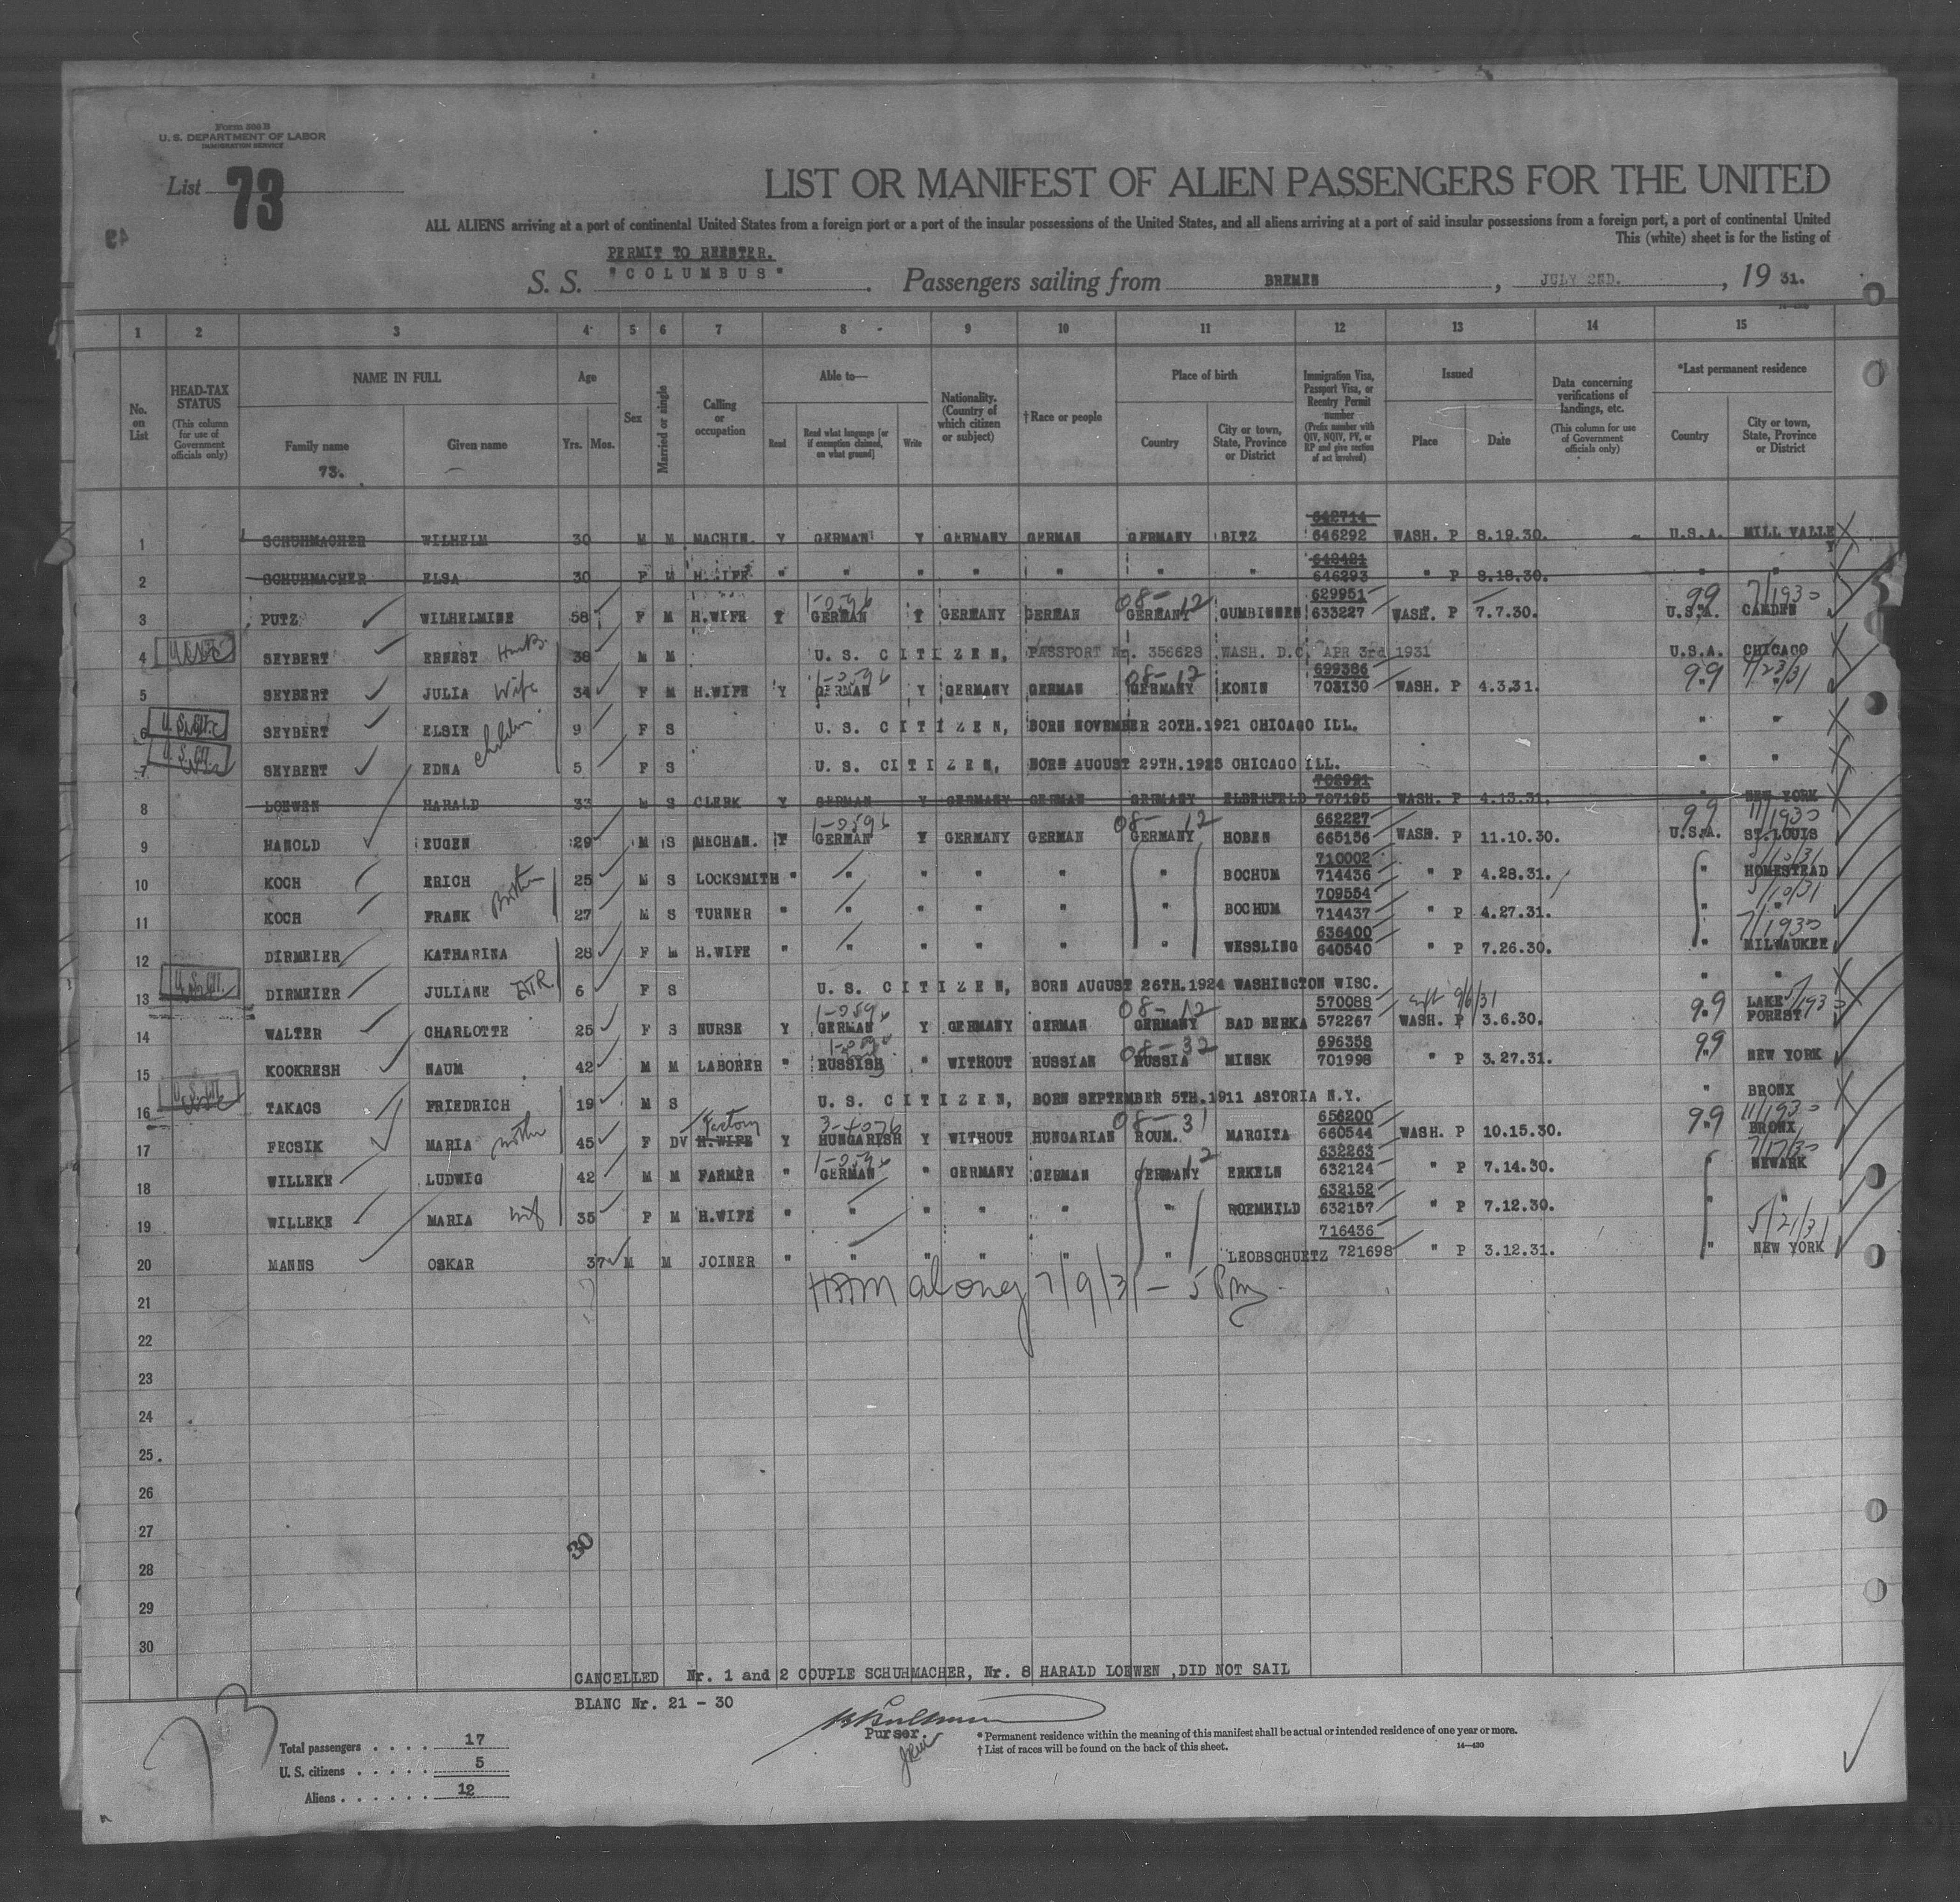 Form 500 B
U. S. DEPARTMENT OF LABOR
IMMIGRATION SERVICE
List 73
LIST OR MANIFEST OF ALIEN PASSENGERS FOR THE UNITED
ALL ALIENS arriving at a port of continental United States from a foreign port or a port of the insular possessions of the United States, and all aliens arriving at a port of said insular possessions from a foreign port, a port of continental United
This (white) sheet is for the listing of
PERMIT TO REENTER.
S. S. "COLUMBUS". Passengers sailing from BREMEN, JULY 2ND., 19 31.
1 2 3 4 5 6 7 8 9 10 11 12 13 14 15
No. on List
HEAD-TAX STATUS (This column for use of Government officials only)
NAME IN FULL
Family name
Given name
73.
Age
Yrs. Mos.
Sex
Married or single
Calling or occupation
Able to—
Read
Read what language [or if exemption claimed, on what ground]
Write
Nationality. (Country of which citizen or subject)
†Race or people
Place of birth
Country
City or town, State, Province or District
Immigration Visa, Passport Visa, or Reentry Permit number (Prefix number with QIV, NQIV, PV, or RP and give section of act involved)
Issued
Place
Date
Data concerning verifications of landings, etc. (This column for use of Government officials only)
*Last permanent residence
Country
City or town, State, Province or District
642714
1 SCHUHMACHER WILHELM 30 M M MACHIN. Y GERMAN Y GERMANY GERMAN GERMANY BITZ 646292 WASH. P 8.19.30. U.S.A. MILL VALLEY
2 SCHUHMACHER ELSA 30 F M H.WIFE " " " " " " " 646293 " P 8.18.30. " "
629951 99 7/1930
3 PUTZ WILHELMINE 58 F M H.WIFE Y GERMAN Y GERMANY GERMAN GERMANY GUMBINNEN 633227 WASH. P 7.7.30. U.S.A. CAMDEN
4 SEYBERT ERNEST 38 M M U. S. CITIZEN, PASSPORT Nr. 356628 WASH. D.C. APR 3rd 1931 U.S.A. CHICAGO
699386 99
5 SEYBERT JULIA Wife 34 F M H.WIFE Y GERMAN Y GERMANY GERMAN GERMANY KONIN 703130 WASH. P 4.3.31. "
6 SEYBERT ELSIE children 9 F S U. S. CITIZEN, BORN NOVEMBER 20TH.1921 CHICAGO ILL. " "
7 SEYBERT EDNA 5 F S U. S. CITIZEN, BORN AUGUST 29TH.1925 CHICAGO ILL. " "
8 LOEWEN HARALD 33 M S CLERK Y GERMAN Y GERMANY GERMAN GERMANY ELBERFELD 707195 WASH. P 4.13.31. " NEW YORK
662227 99 11/1930
9 HANOLD EUGEN 29 M S MECHAN. Y GERMAN Y GERMANY GERMAN GERMANY HOBEN 665156 WASH. P 11.10.30. U.S.A. ST.LOUIS
710002
10 KOCH ERICH 25 M S LOCKSMITH " " " " " " BOCHUM 714436 " P 4.28.31. " HOMESTEAD
709554 5/10/31
11 KOCH FRANK 27 M S TURNER " " " " " " BOCHUM 714437 " P 4.27.31. " "
636400 7/1930
12 DIRMEIER KATHARINA 28 F M H.WIFE " " " " " " WESSLING 640540 " P 7.26.30. " MILWAUKEE
13 DIRMEIER JULIANE 6 F S U. S. CITIZEN, BORN AUGUST 26TH.1924 WASHINGTON WISC. " "
570088 99
14 WALTER CHARLOTTE 25 F S NURSE Y GERMAN Y GERMANY GERMAN GERMANY BAD BERKA 572267 WASH. P 3.6.30. " LAKE FOREST
696358 99
15 KOOKRESH NAUM 42 M M LABORER " RUSSISH " WITHOUT RUSSIAN RUSSIA MINSK 701998 " P 3.27.31. " NEW YORK
16 TAKACS FRIEDRICH 19 M S U. S. CITIZEN, BORN SEPTEMBER 5TH.1911 ASTORIA N.Y. " BRONX
Factory 656200 99 11/1930
17 FECSIK MARIA mother 45 F DV H.WIFE Y HUNGARISH Y WITHOUT HUNGARIAN ROUM. MARGITA 660544 WASH. P 10.15.30. " BRONX
632263
18 WILLEKE LUDWIG 42 M M FARMER " GERMAN " GERMANY GERMAN GERMANY ERKELN 632124 " P 7.14.30. " NEWARK
632152
19 WILLEKE MARIA wife 35 F M H.WIFE " " " " " " ROEMHILD 632157 " P 7.12.30. " "
716436 5/21/31
20 MANNS OSKAR 37 M M JOINER " " " " " " LEOBSCHUETZ 721698 " P 3.12.31. " NEW YORK
21 along 7/9/31 - 5 Pm
22
23
24
25
26
27
30
28
29
30
CANCELLED Nr. 1 and 2 COUPLE SCHUHMACHER, Nr. 8 HARALD LOEWEN ,DID NOT SAIL
BLANC Nr. 21 - 30
73
Purser.
Total passengers . . . . 17
U. S. citizens . . . . . 5
Aliens . . . . . . 12
* Permanent residence within the meaning of this manifest shall be actual or intended residence of one year or more.
† List of races will be found on the back of this sheet.
14—430